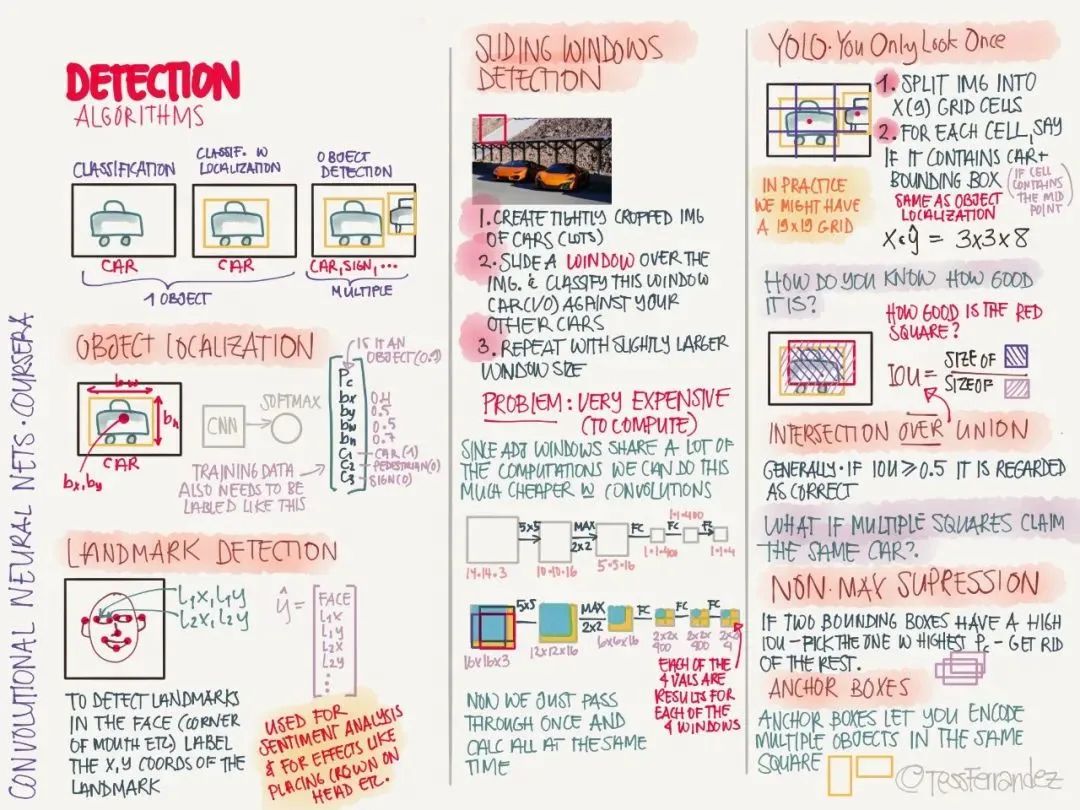 CONVOLUTIONAL NEURAL NETS · COURSERA
DETECTION
ALGORITHMS
CLASSIFICATION
CLASSIF. W
LOCALIZATION
OBJECT
DETECTION
CAR
CAR
CAR, SIGN, ...
1 OBJECT
MULTIPLE
OBJECT LOCALIZATION
bw
bh
bx, by
CAR
CNN
SOFTMAX
IS IT AN
OBJECT (0.1)
Pc
bx
by 0.5
bw 0.5
bh 0.7
C1 - CAR (1)
C2 - PEDESTRIAN (0)
C3 - SIGN (0)
TRAINING DATA
ALSO NEEDS TO BE
LABLED LIKE THIS
LANDMARK DETECTION
L1X, L1Y
L2X, L2Y
ŷ =
FACE
L1X
L1Y
L2X
L2Y
⋮
TO DETECT LANDMARKS
IN THE FACE (CORNER
OF MOUTH ETC) LABEL
THE X,Y COORDS OF THE
LANDMARK
USED FOR
SENTIMENT ANALYSIS
& FOR EFFECTS LIKE
PLACING CROWN ON
HEAD ETC.
SLIDING WINDOWS
DETECTION
1. CREATE TIGHTLY CROPPED IMG
OF CARS (LOTS)
2. SLIDE A WINDOW OVER THE
IMG. & CLASSIFY THIS WINDOW
CAR (1/0) AGAINST YOUR
OTHER CARS
3. REPEAT WITH SLIGHTLY LARGER
WINDOW SIZE
PROBLEM: VERY EXPENSIVE
(TO COMPUTE)
SINCE ADJ WINDOWS SHARE A LOT OF
THE COMPUTATIONS WE CAN DO THIS
MUCH CHEAPER W CONVOLUTIONS
5x5 MAX 2x2 FC FC FC
14·14·3 10·10·16 5·5·16 1·1·400 1·1·400 1·1·4
5x5 MAX 2x2 FC FC FC
16x16x3 12x12x16 6x6x16 2x2x400 2x2x400 2x2x4
EACH OF THE
4 VALS ARE
RESULTS FOR
EACH OF THE
4 WINDOWS
NOW WE JUST PASS
THROUGH ONCE AND
CALC ALL AT THE SAME
TIME
YOLO · You Only Look Once
1. SPLIT IMG INTO
X (9) GRID CELLS
2. FOR EACH CELL, SAY
IF IT CONTAINS CAR +
BOUNDING BOX
(IF CELL
CONTAINS
THE MID
POINT)
SAME AS OBJECT
LOCALIZATION
IN PRACTICE
WE MIGHT HAVE
A 19x19 GRID
ŷ = 3x3x8
HOW DO YOU KNOW HOW GOOD
IT IS?
HOW GOOD IS THE RED
SQUARE?
IOU =
SIZE OF
SIZE OF
INTERSECTION OVER UNION
GENERALLY · IF IOU ≥ 0.5 IT IS REGARDED
AS CORRECT
WHAT IF MULTIPLE SQUARES CLAIM
THE SAME CAR?
NON·MAX SUPRESSION
IF TWO BOUNDING BOXES HAVE A HIGH
IOU - PICK THE ONE W HIGHEST Pc - GET RID
OF THE REST.
ANCHOR BOXES
ANCHOR BOXES LET YOU ENCODE
MULTIPLE OBJECTS IN THE SAME
SQUARE
@TessFerrandez